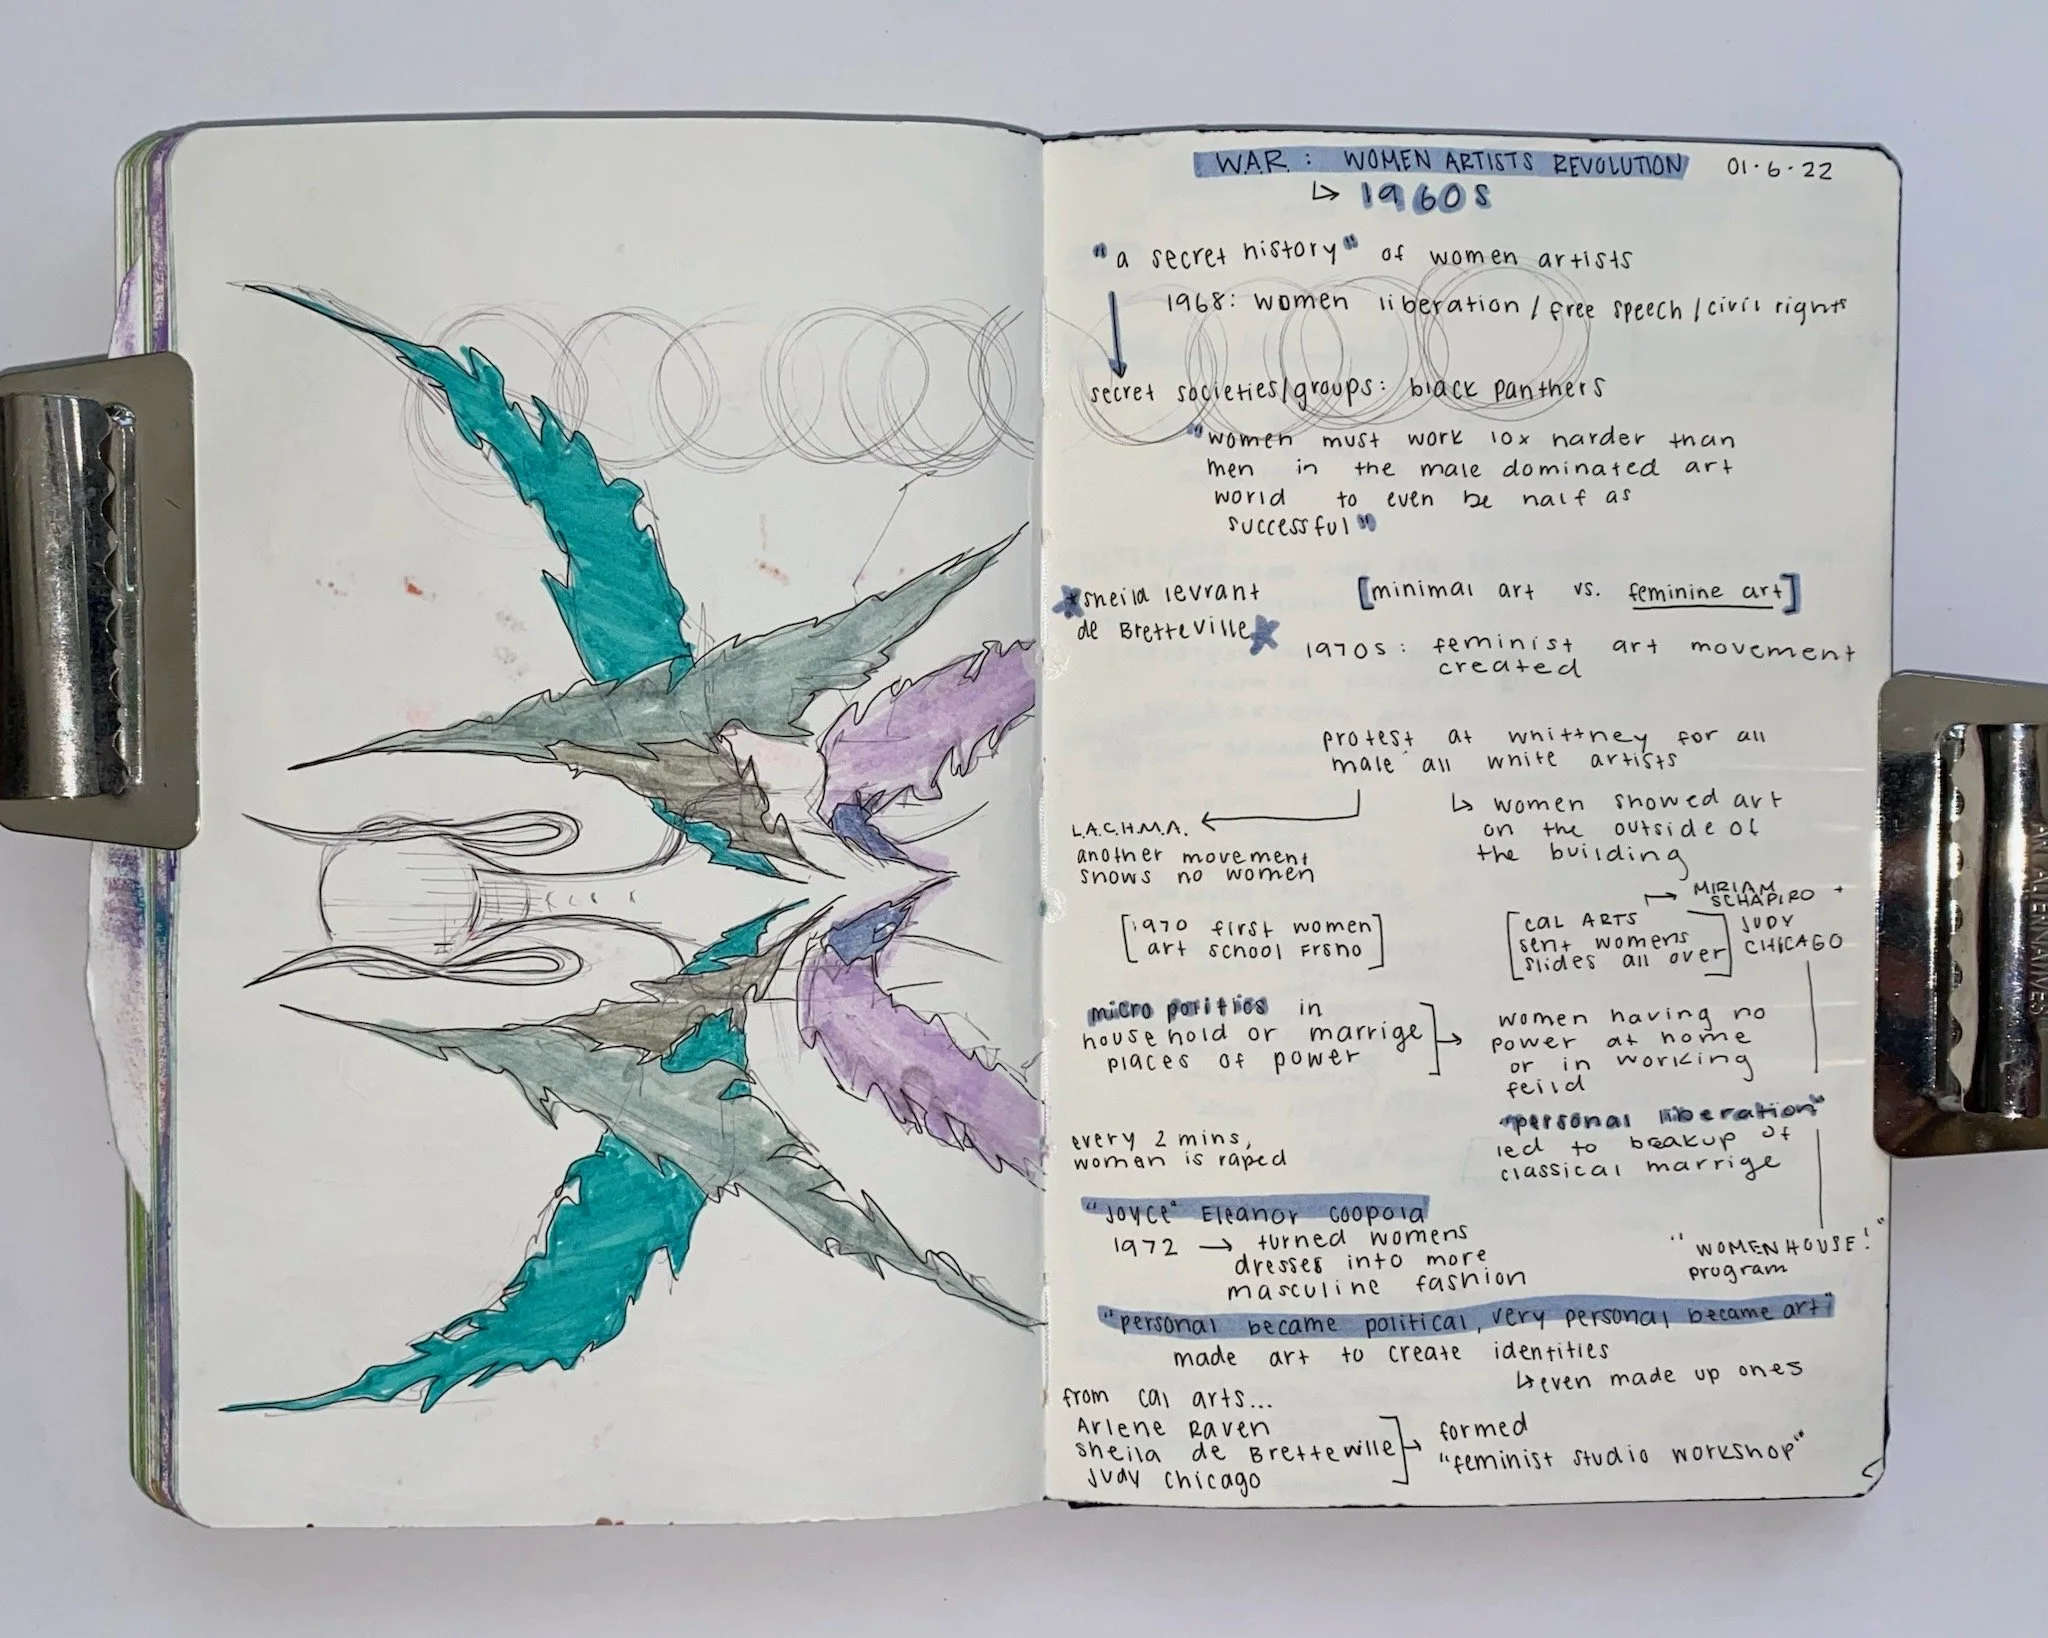 W.A.R. : WOMEN ARTISTS REVOLUTION 01·6·22
↳ 1960s
"a secret history" of women artists
1968: women liberation / free speech / civil rights
secret societies/groups: black panthers
"women must work 10x harder than
men in the male dominated art
world to even be half as
successful"
sheila levrant
de Bretteville
[minimal art vs. feminine art]
1970s: feminist art movement
created
protest at whittney for all
male all white artists
↳ women showed art
on the outside of
the building
L.A.C.H.M.A.
another movement
shows no women
[1970 first women
art school Frsno]
[CAL ARTS
sent womens
slides all over]
MIRIAM
SCHAPIRO +
JUDY
CHICAGO
micro politics in
household or marrige
places of power
women having no
power at home
or in working
feild
"personal liberation"
led to breakup of
classical marrige
every 2 mins,
woman is raped
"WOMENHOUSE!"
program
"Joyce" Eleanor Coopola
1972 → turned womens
dresses into more
masculine fashion
"personal became political, very personal became art"
made art to create identities
↳ even made up ones
from cal arts...
Arlene Raven
sheila de Bretteville
Judy Chicago
formed
"feminist studio workshop"